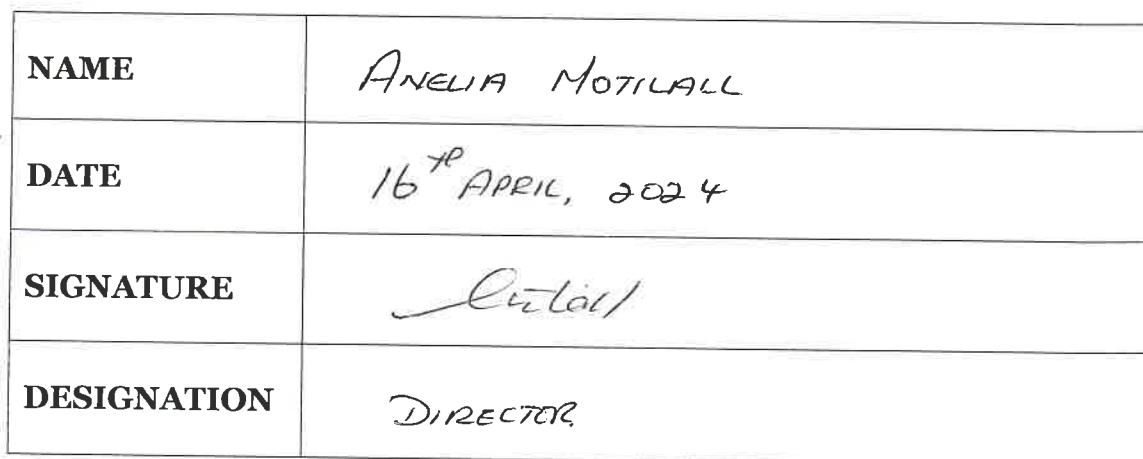 NAME ANELIA MOTILALL
DATE 16TH APRIL, 2024
SIGNATURE
DESIGNATION DIRECTOR